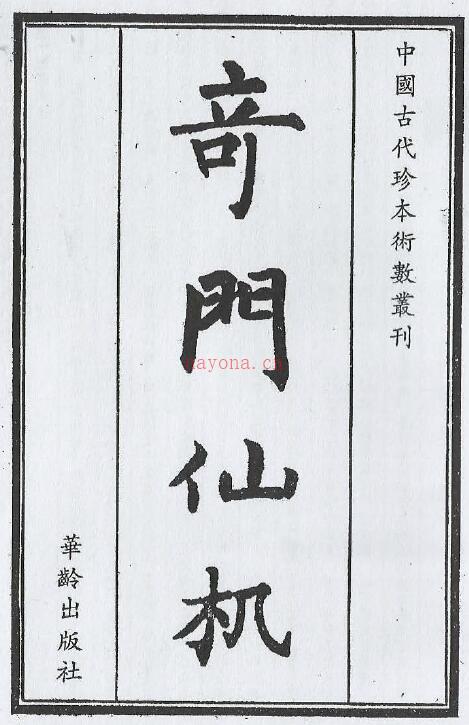 中國古代珍本術數叢刊
竒門仙机
華齡出版社
nayona.cn